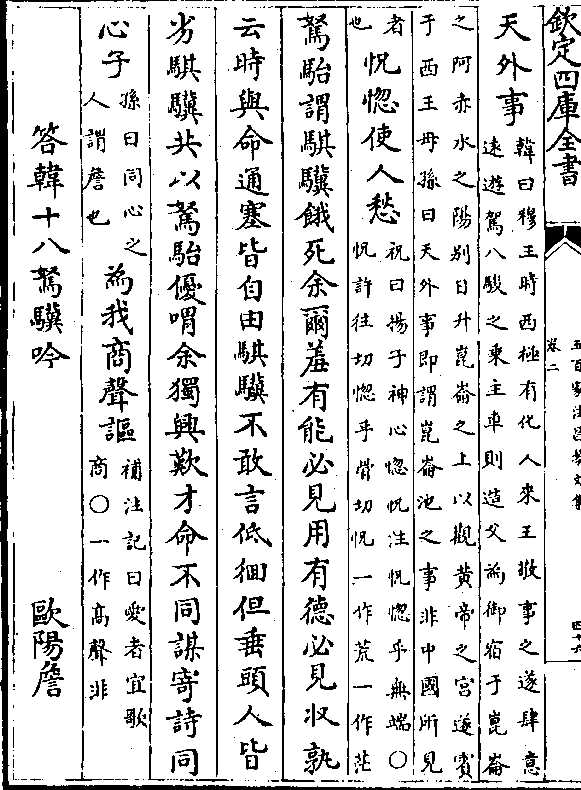 欽定四庫全書
卷二
五百家注昌黎文集
天外事韓曰穆王時西極有化人來王敬事之遂肆意
逺遊駕八駿之乗主車則造父為御宿于崑崙
之阿赤水之陽别日升崑崙之上以觀黄帝之宫遂賓
于西王母孫曰天外事即謂崑崙池之事非中國所見
者怳惚使人愁祝曰揚子神心惚怳注怳惚乎無端〇
也怳許往切惚乎骨切怳一作荒一作茫
駑駘謂騏驥餓死余爾羞有能必見用有德必見收孰
云時與命通塞皆自由騏驥不敢言低徊但垂頭人皆
劣騏驥共以駑駘優喟余獨興歎才命不同謀寄詩同
心子孫曰同心之人謂詹也為我商聲謳補注記曰愛者宜歌商〇一作高聲非
答韓十八駑驥吟
歐陽詹